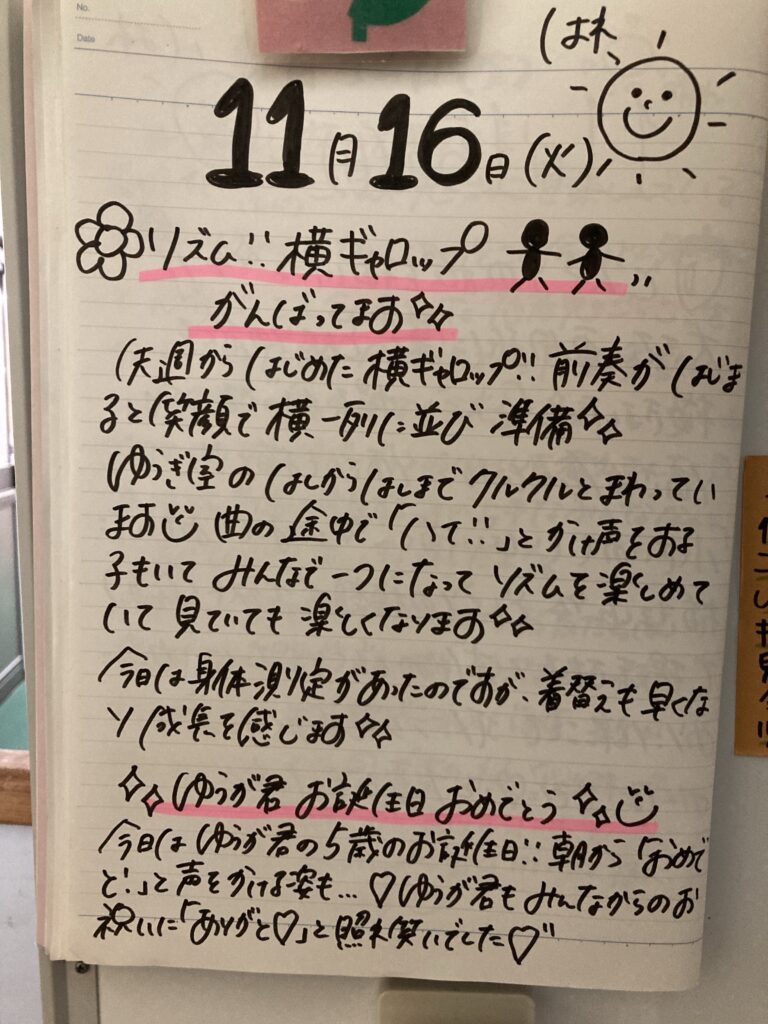 No.
Date
はれ
11月16日(火)
リズム!! 横ギャロップ
がんばってます
先週からはじめた横ギャロップ!! 前奏がはじま
ると笑顔で横一列に並び準備
ゆうぎ室のはしからはしまでクルクルとまわってい
ます 曲の途中で「ハイ!!」とかけ声をする
子もいてみんなで一つになってリズムを楽しめて
いて見ていても楽しくなります
今日は身体測定があったのですが、着替えも早くな
り成長を感じます
ゆうが君 お誕生日 おめでとう
今日はゆうが君の5歳のお誕生日!! 朝から「おめで
と!」と声をかける姿も…♡ゆうが君もみんなからのお
祝いに「ありがと♡」と照れ笑いでした♡